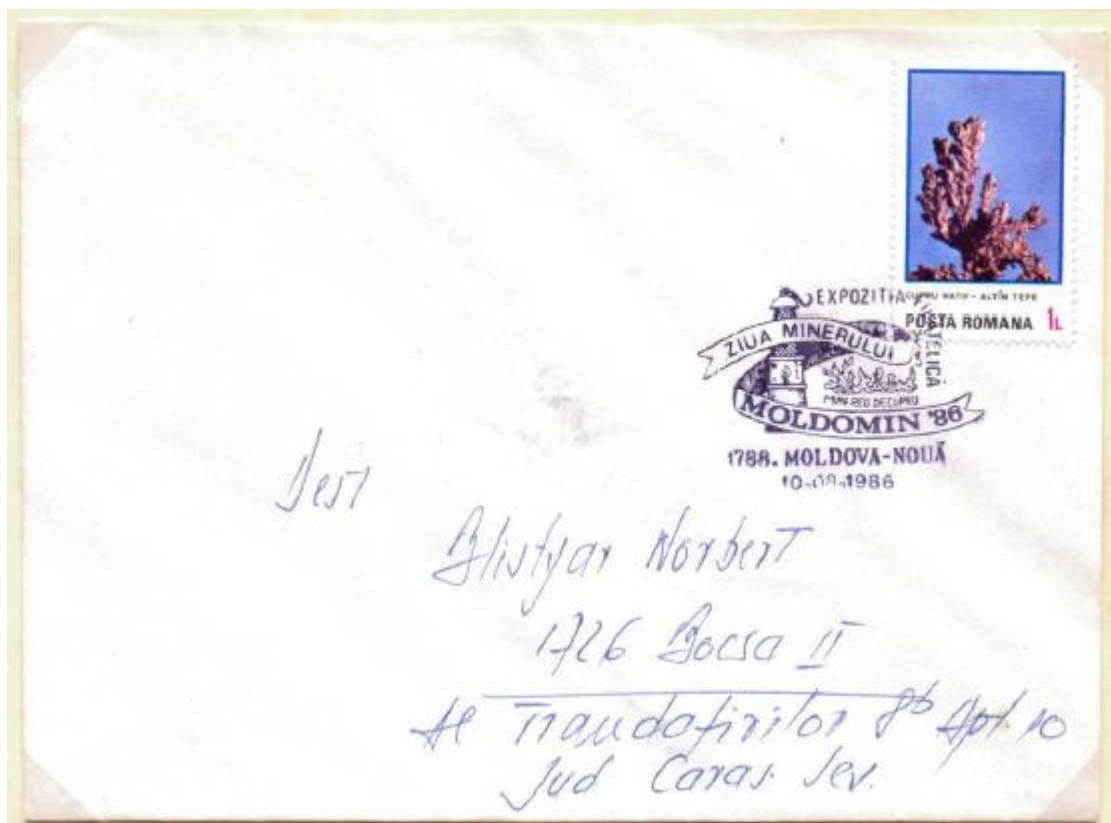 CUPRU NATIV - ALTÎN TEPE
POSTA ROMANA 1L
EXPOZITIA FILATELICĂ
ZIUA MINERULUI
MINEREU DE CUPRU
MOLDOMIN '86
1788. MOLDOVA-NOUĂ
10-08-1986
Dest
Blistyar Norbert
1726 Bocsa II
Al Trandafirilor 8b Apt. 10
Jud Caras. Sev.